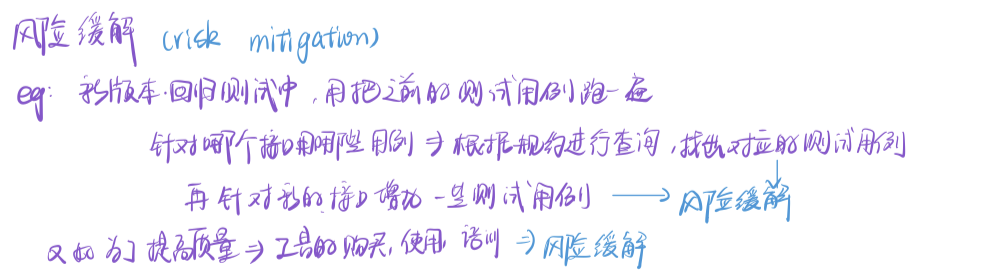 风险缓解 (risk mitigation)
eg: 新版本·回归测试中,用把之前的测试用例跑一遍
针对哪个接口用哪些用例 ⇒ 根据规约进行查询,找出对应的测试用例
再针对新的接口增加一些测试用例 → 风险缓解
又如为了提高质量 ⇒ 工具的购买,使用,培训 ⇒ 风险缓解